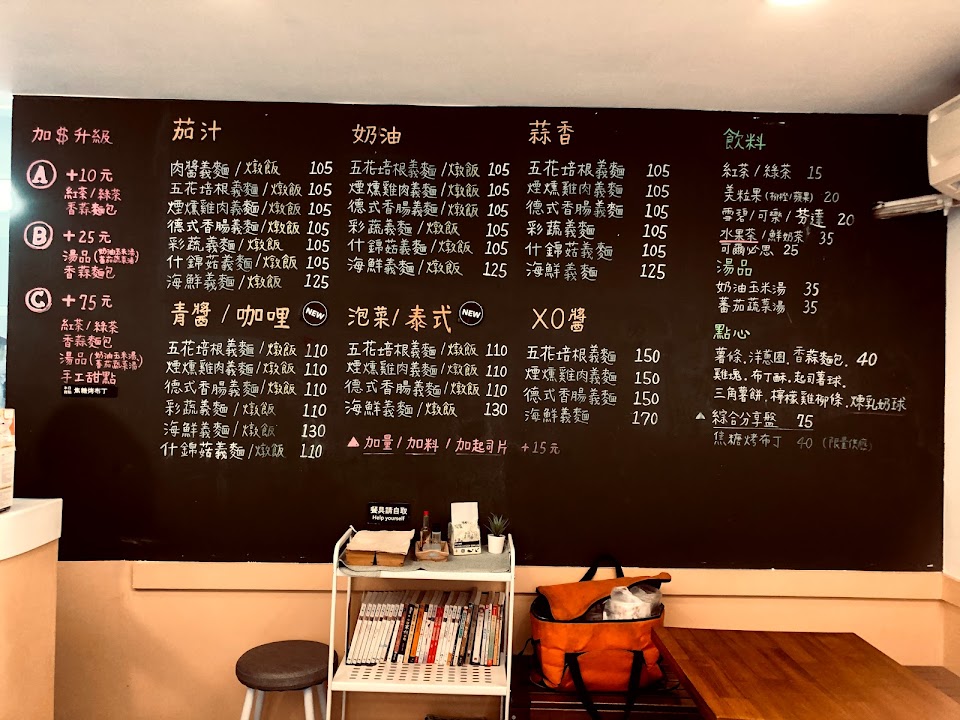 加$升級
A +10元
紅茶/綠茶
香蒜麵包
B +25元
湯品(奶油玉米湯/番茄蔬菜湯)
香蒜麵包
C +75元
紅茶/綠茶
香蒜麵包
湯品(奶油玉米湯/番茄蔬菜湯)
手工甜點
焦糖烤布丁
茄汁
肉醬義麵/燉飯 105
五花培根義麵/燉飯 105
煙燻雞肉義麵/燉飯 105
德式香腸義麵/燉飯 105
彩蔬義麵/燉飯 105
什錦菇義麵/燉飯 105
海鮮義麵/燉飯 125
奶油
五花培根義麵/燉飯 105
煙燻雞肉義麵/燉飯 105
德式香腸義麵/燉飯 105
彩蔬義麵/燉飯 105
什錦菇義麵/燉飯 105
海鮮義麵/燉飯 125
蒜香
五花培根義麵 105
煙燻雞肉義麵 105
德式香腸義麵 105
彩蔬義麵 105
什錦菇義麵 105
海鮮義麵 125
青醬/咖哩 NEW
五花培根義麵/燉飯 110
煙燻雞肉義麵/燉飯 110
德式香腸義麵/燉飯 110
彩蔬義麵/燉飯 110
海鮮義麵/燉飯 130
什錦菇義麵/燉飯 110
泡菜/泰式 NEW
五花培根義麵/燉飯 110
煙燻雞肉義麵/燉飯 110
德式香腸義麵/燉飯 110
海鮮義麵/燉飯 130
▲加量/加料/加起司片 +15元
XO醬
五花培根義麵 150
煙燻雞肉義麵 150
德式香腸義麵 150
海鮮義麵 170
飲料
紅茶/綠茶 15
美粒果(柳橙/蘋果) 20
雪碧/可樂/芬達 20
水果茶/鮮奶茶 35
可爾必思 25
湯品
奶油玉米湯 35
蕃茄蔬菜湯 35
點心
薯條.洋蔥圈.香蒜麵包. 40
雞塊.布丁酥.起司薯球.
三角薯餅.檸檬雞柳條.煉乳奶球
▲綜合分享盤 75
焦糖烤布丁 40 (限量供應)
餐具請自取
Help yourself